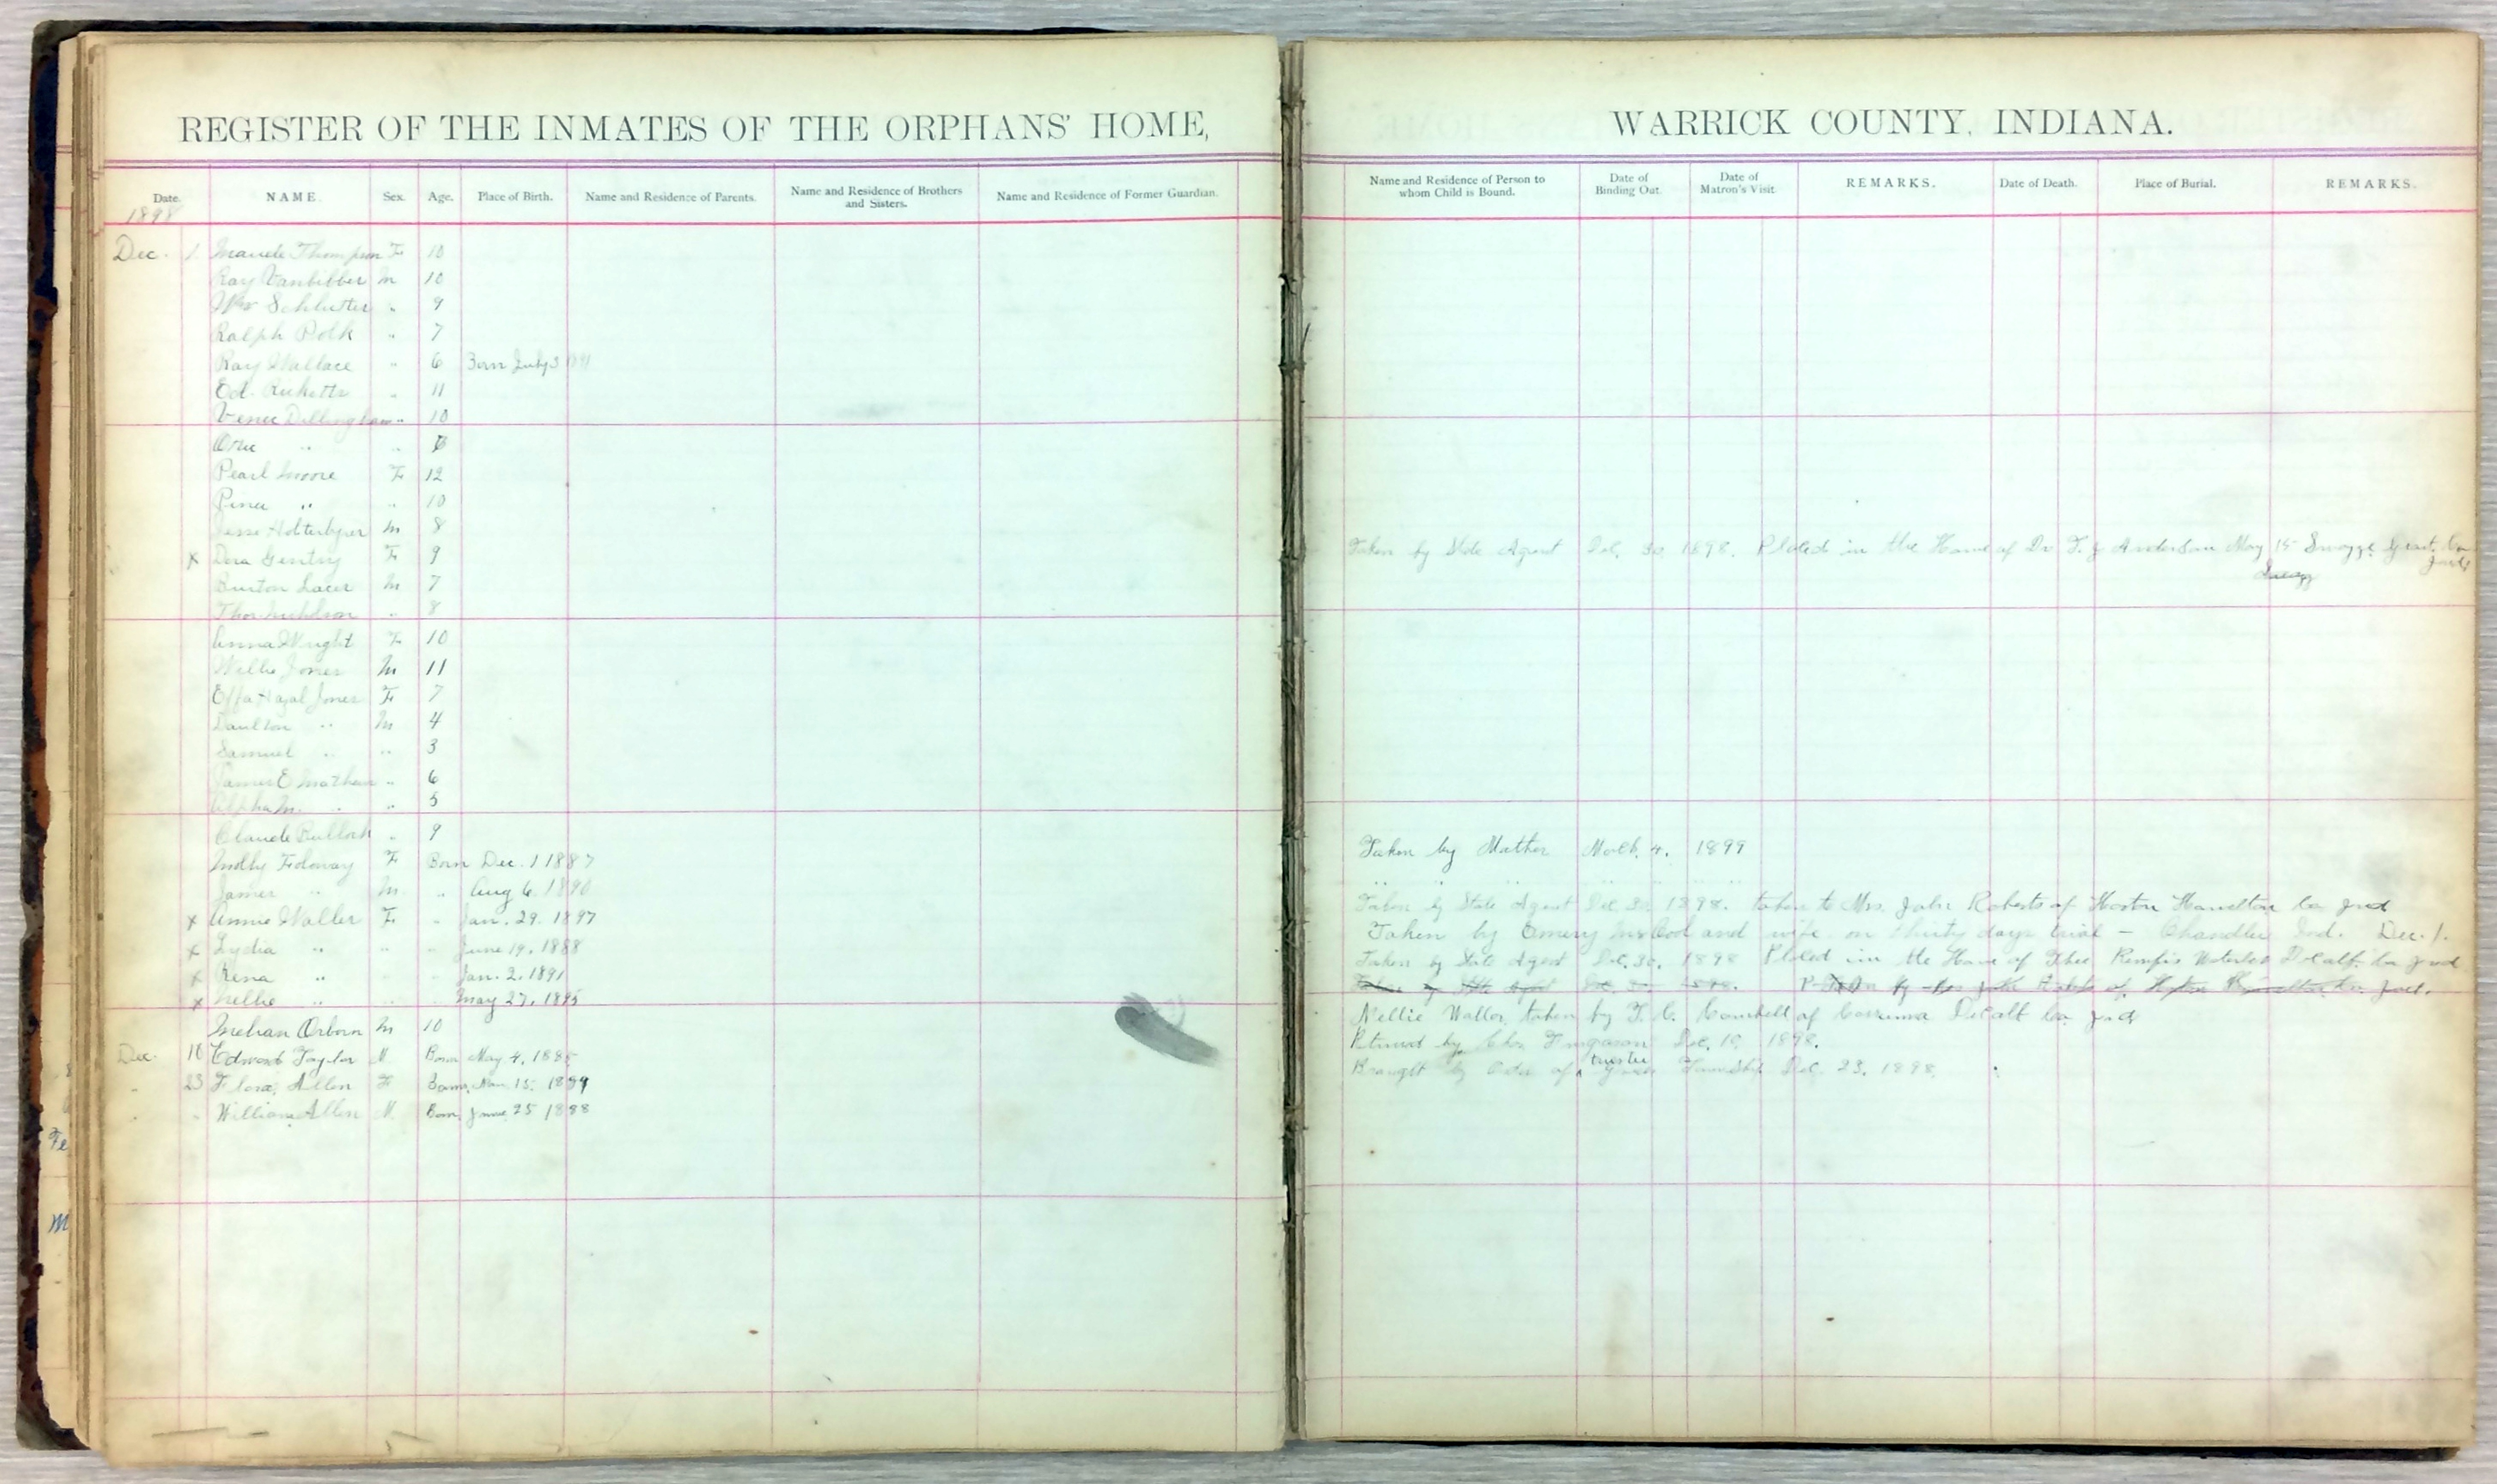 REGISTER OF THE INMATES OF THE ORPHANS' HOME,
Date. NAME. Sex. Age. Place of Birth. Name and Residence of Parents. Name and Residence of Brothers and Sisters. Name and Residence of Former Guardian.
1898
Dec. 1 Maude Thompson F 10
Ray Vanbibber M 10
Wm Schlutter " 9
Ralph Polk " 7
Ray Wallace " 6 Born July 3 1891
Ed. Ricketts " 11
Dillingham " 10
" "
Pearl Moore F 12
" " 10
Jesse M 8
x Dora Gentry F 9
Burton Lacer M 7
Thos. Nicholson " 8
Anna Wright F 10
Willie Jones M 11
Effa Hazal Jones F 7
Daulton " M 4
Samuel " " 3
James E " 6
Alpha M. " " 5
Claude Bullock " 9
Molly F Born Dec. 1 1887
James " M " Aug 6. 1890
x Annie Waller F " Jan. 29. 1897
x Lydia " " " June 19. 1888
x Rena " " " Jan. 2. 1891
x Nellie " " " May 27. 1895
Osborn M 10
Dec. 10 Edward Taylor M. Born May 4. 1885
" 23 Flora Allen F Born. Nov. 15. 1899
" " William Allen M. Born. June 25 1888
WARRICK COUNTY, INDIANA.
Name and Residence of Person to whom Child is Bound. Date of Binding Out. Date of Matron's Visit. REMARKS. Date of Death. Place of Burial. REMARKS.
Taken by State Agent Dec. 30 1898. Placed in the Home of Dr Anderson May 15 Grant Co
Taken by Mother 4. 1899
" " " " " "
Taken by State Agent Dec. 30 1898. taken to Mrs. John Roberts of Horton Hamelton Co Ind
Taken by Emery and wife on thirty days trial – Chandler Ind. Dec. 1.
Taken by State Agent Dec. 30. 1898 Placed in the Home of Waterloo DeCalb Co Ind
Nellie Waller taken by F. C. Cambell of Corruna DeCalb Co Ind
Returned by Chas Furgason Dec. 10. 1898.
Brought by Order of trustee Township Dec. 23. 1898.